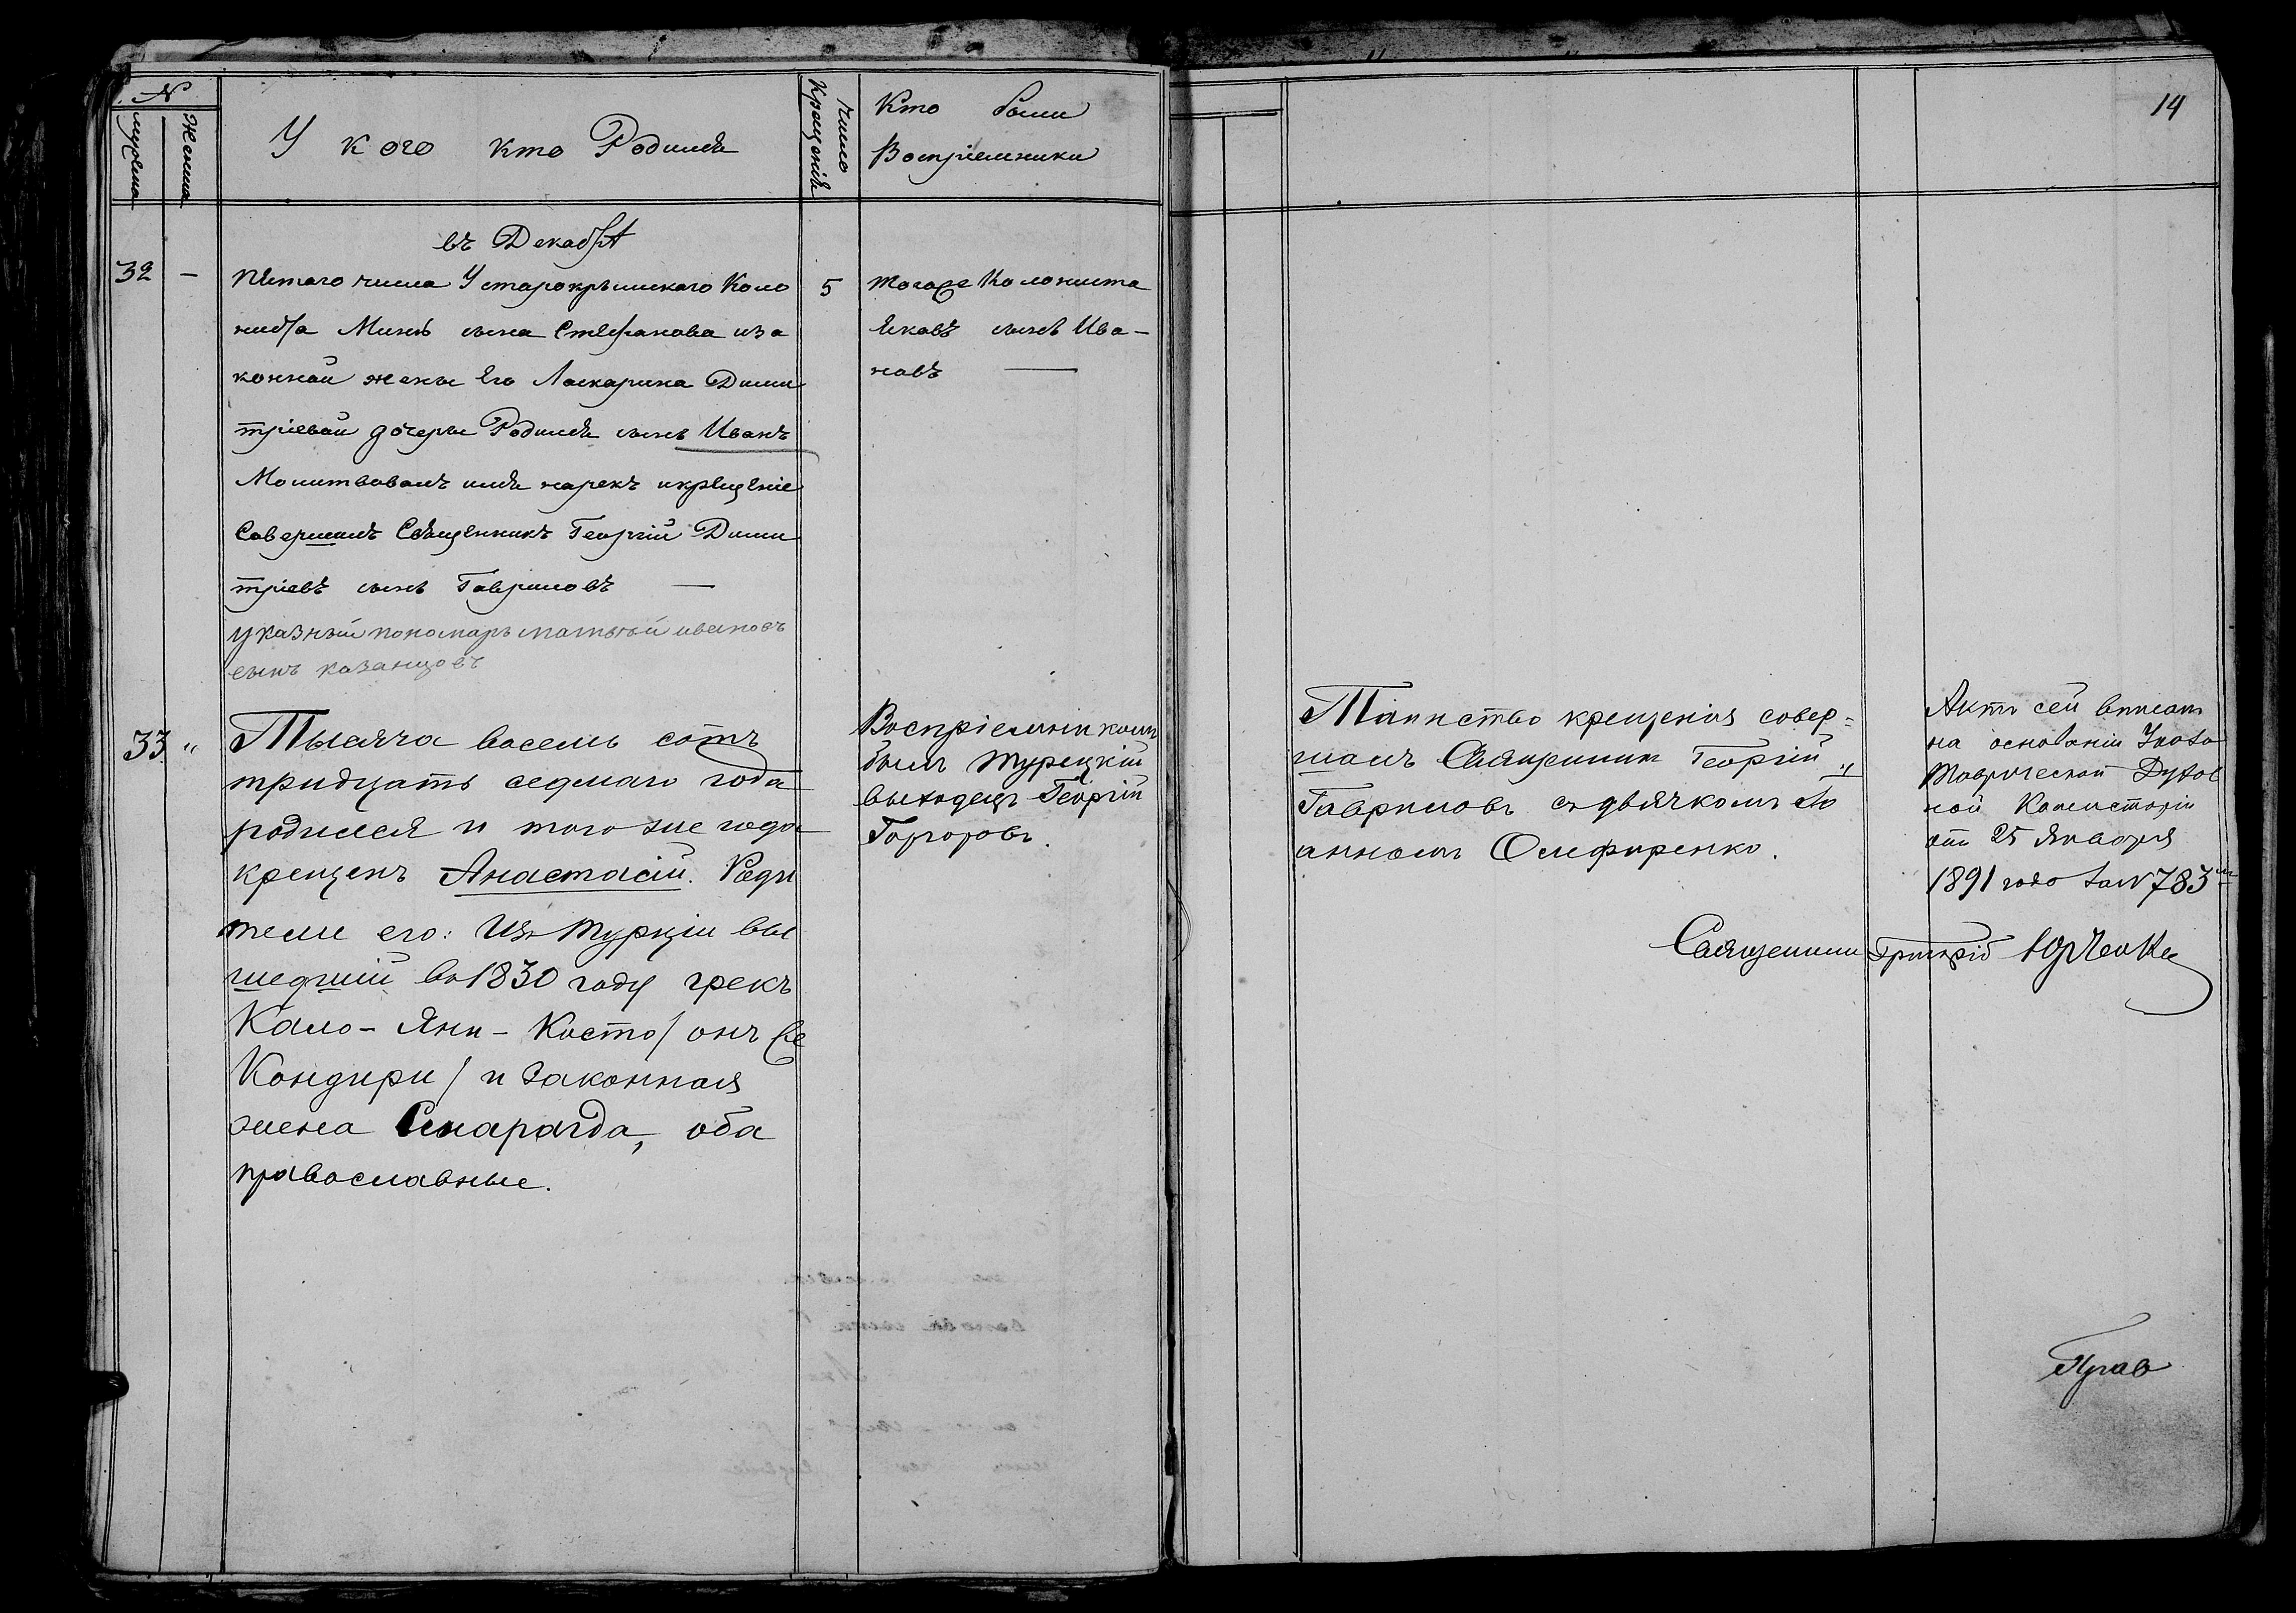 14
№
мужеска
Женска
У кого кто Родился
Число
Крещенія
Кто были
Воспріемники
въ Декабрѧ
32 —
пятаго числа У старокрымскаго Коло
нисta Минѣ сына Стефанова иза
конной жены Его Ласкарина Дими
тріевой дочеры Родился сынъ Иванъ
Молитвовалъ имя нарекъ икрещеніе
Совершалъ Священникъ Георгій Дими
тріевъ сынъ Гавриловъ —
указный пономарь матвѣй ивановъ
сынъ казанцовъ
5
тогоже Колониста
Яковъ сынъ Ива-
новъ —
33 "
Тысяча восемь сотъ
тридцать седмаго года
родился и того же года
крещенъ Анастасій. Роди
тели его: Изъ Турціи вы
шедшій въ 1830 году грекъ
Кало - Яни - Косто / онъ же
Кондури / и законная
жена Смарагда, оба
православные.
Воспріемникомъ
былъ турецкій
выходецъ Георгій
Горгоровъ.
Таинство крещенія совер=
шалъ Священникъ Георгій
Гавриловъ съ дьячкомъ Іо
анномъ Олифиренко.
Актъ сей вписанъ
на основаніи Указа
Таврической Духов
ной Консисторіи
отъ 25 Января
1891 года за № 783м
Священникъ Григорій Юрченко